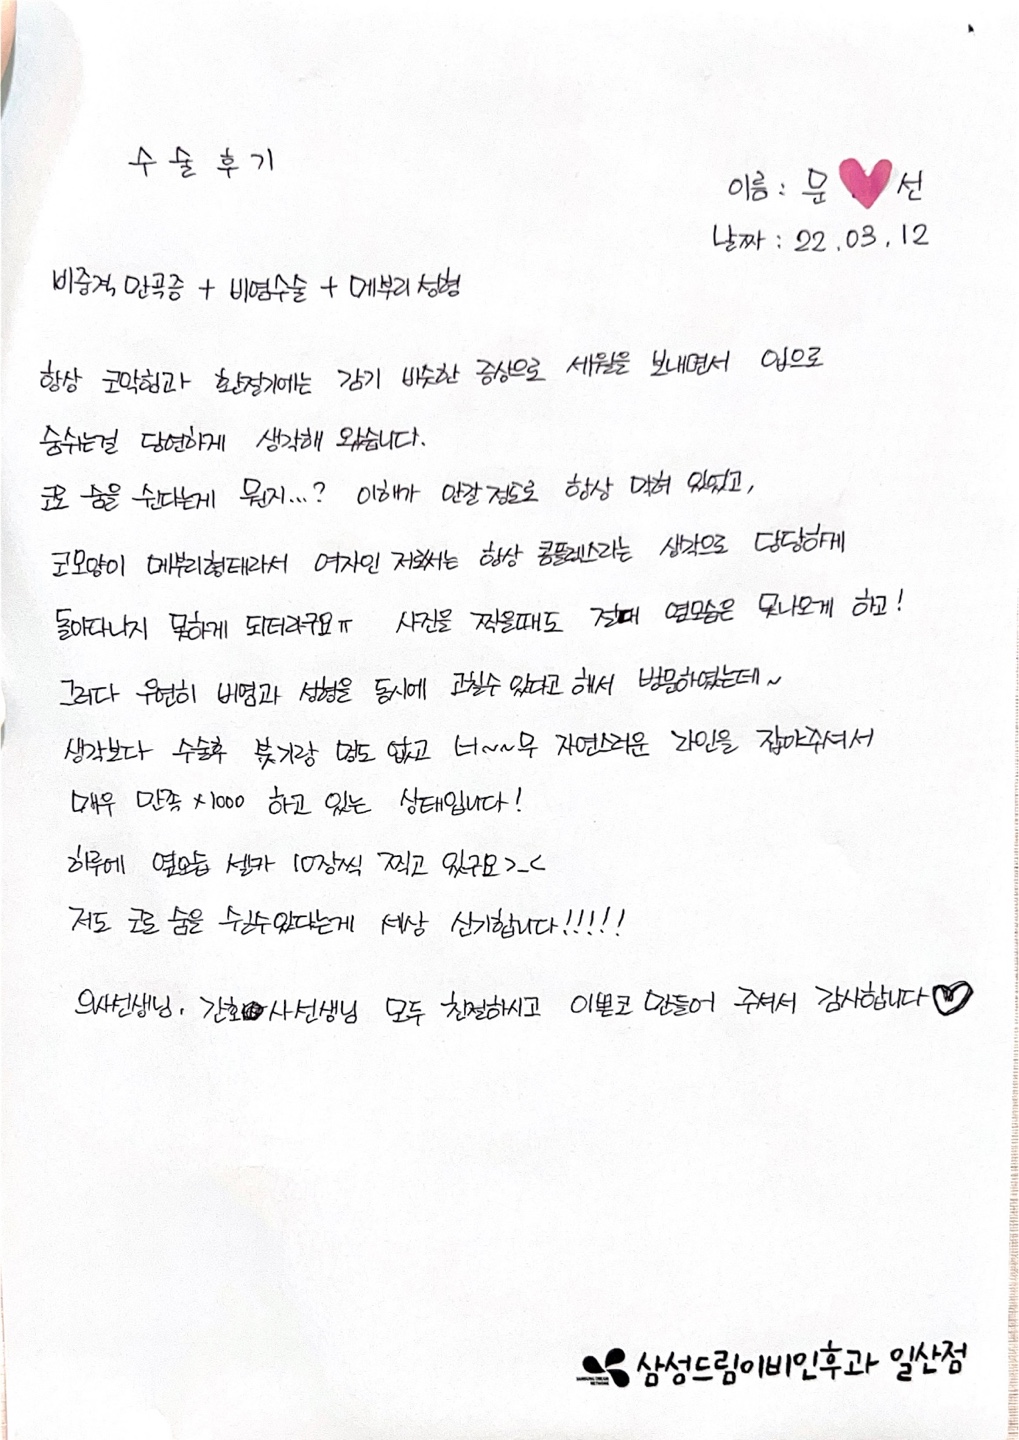 수술후기
이름 : 문 선
날짜 : 22.03.12
비중격 만곡증 + 비염수술 + 메부리성형
항상 코막힘과 환절기에는 감기 비슷한 증상으로 세월을 보내면서 입으로
숨쉬는걸 당연하게 생각해 왔습니다.
코로 숨을 쉰다는게 뭔지...? 이해가 안갈정도로 항상 막혀 있었고,
코모양이 메부리형태라서 여자인 저로써는 항상 콤플렉스라는 생각으로 당당하게
돌아다니지 못하게 되더라구요ㅠ 사진을 찍을때도 절대 옆모습은 못나오게 하고!
그러다 우연히 비염과 성형을 동시에 고칠수 있다고 해서 방문하였는데~
생각보다 수술후 붓기랑 멍도 없고 너~~무 자연스러운 라인을 잡아주셔서
매우 만족 x1000 하고 있는 상태입니다!
하루에 옆모습 셀카 10장씩 찍고 있구요>_<
저도 코로 숨을 쉴수있다는게 세상 신기합니다!!!!!
의사선생님, 간호사선생님 모두 친절하시고 이쁜코 만들어 주셔서 감사합니다♡
삼성드림이비인후과 일산점